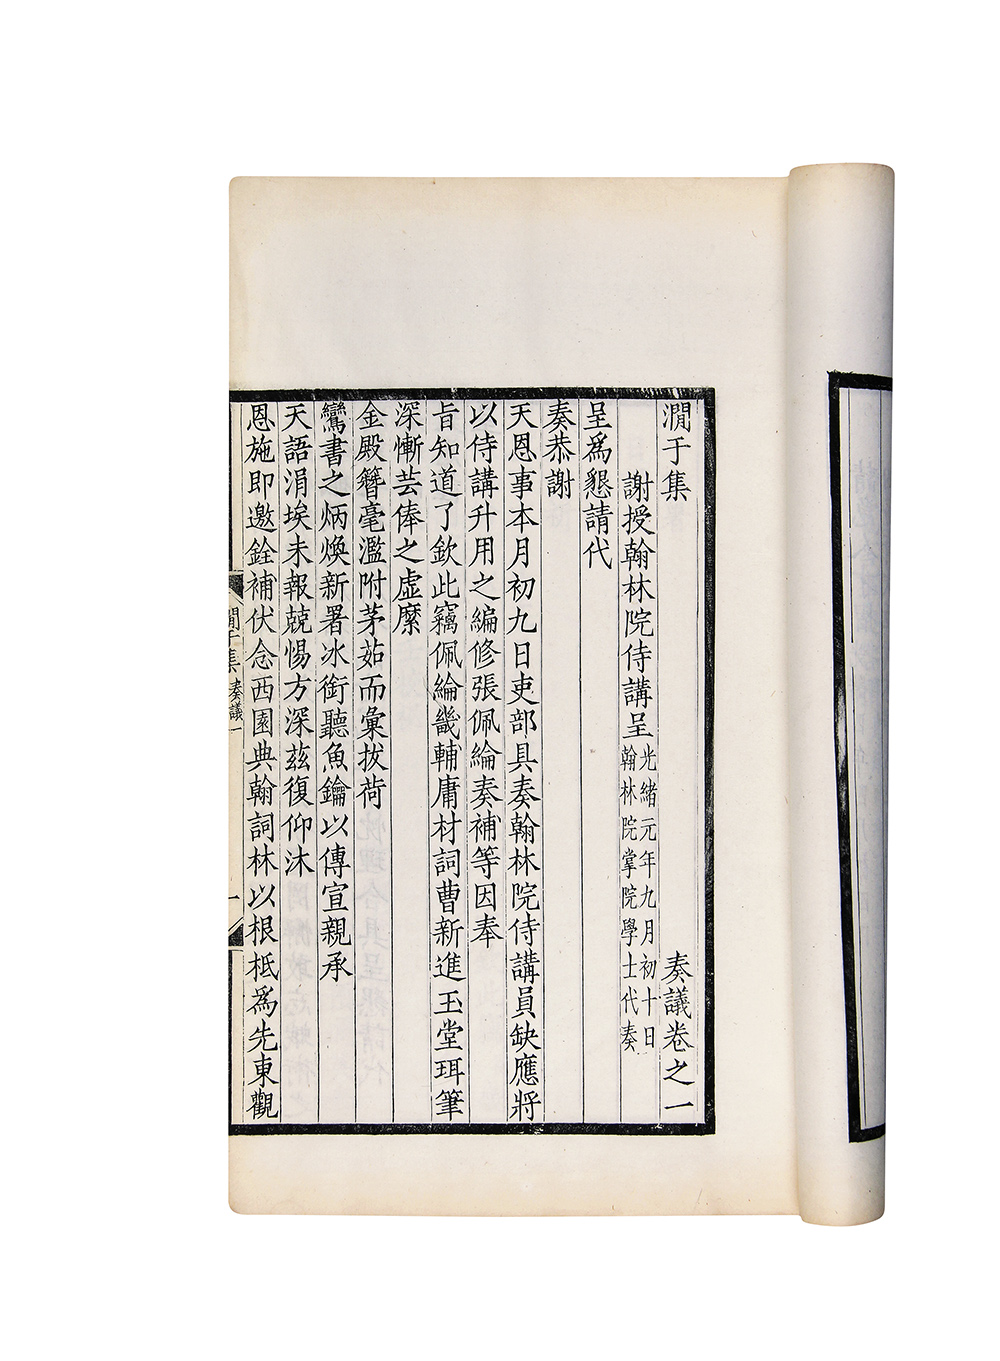 澗于集　奏議卷之一
謝授翰林院侍講呈
光緒元年九月初十日
翰林院掌院學士代奏
呈為懇請代
奏恭謝
天恩事本月初九日吏部具奏翰林院侍講員缺應將
以侍講升用之編修張佩綸奏補等因奉
旨知道了欽此竊佩綸畿輔庸材詞曹新進玉堂珥筆
深慚芸俸之虛縻
金殿簪毫濫附茅茹而彙拔荷
鸞書之炳煥新署冰銜聽魚鑰以傳宣親承
天語涓埃未報兢惕方深茲復仰沐
恩施即邀銓補伏念西園典翰詞林以根柢為先東觀
澗于集　奏議一　一